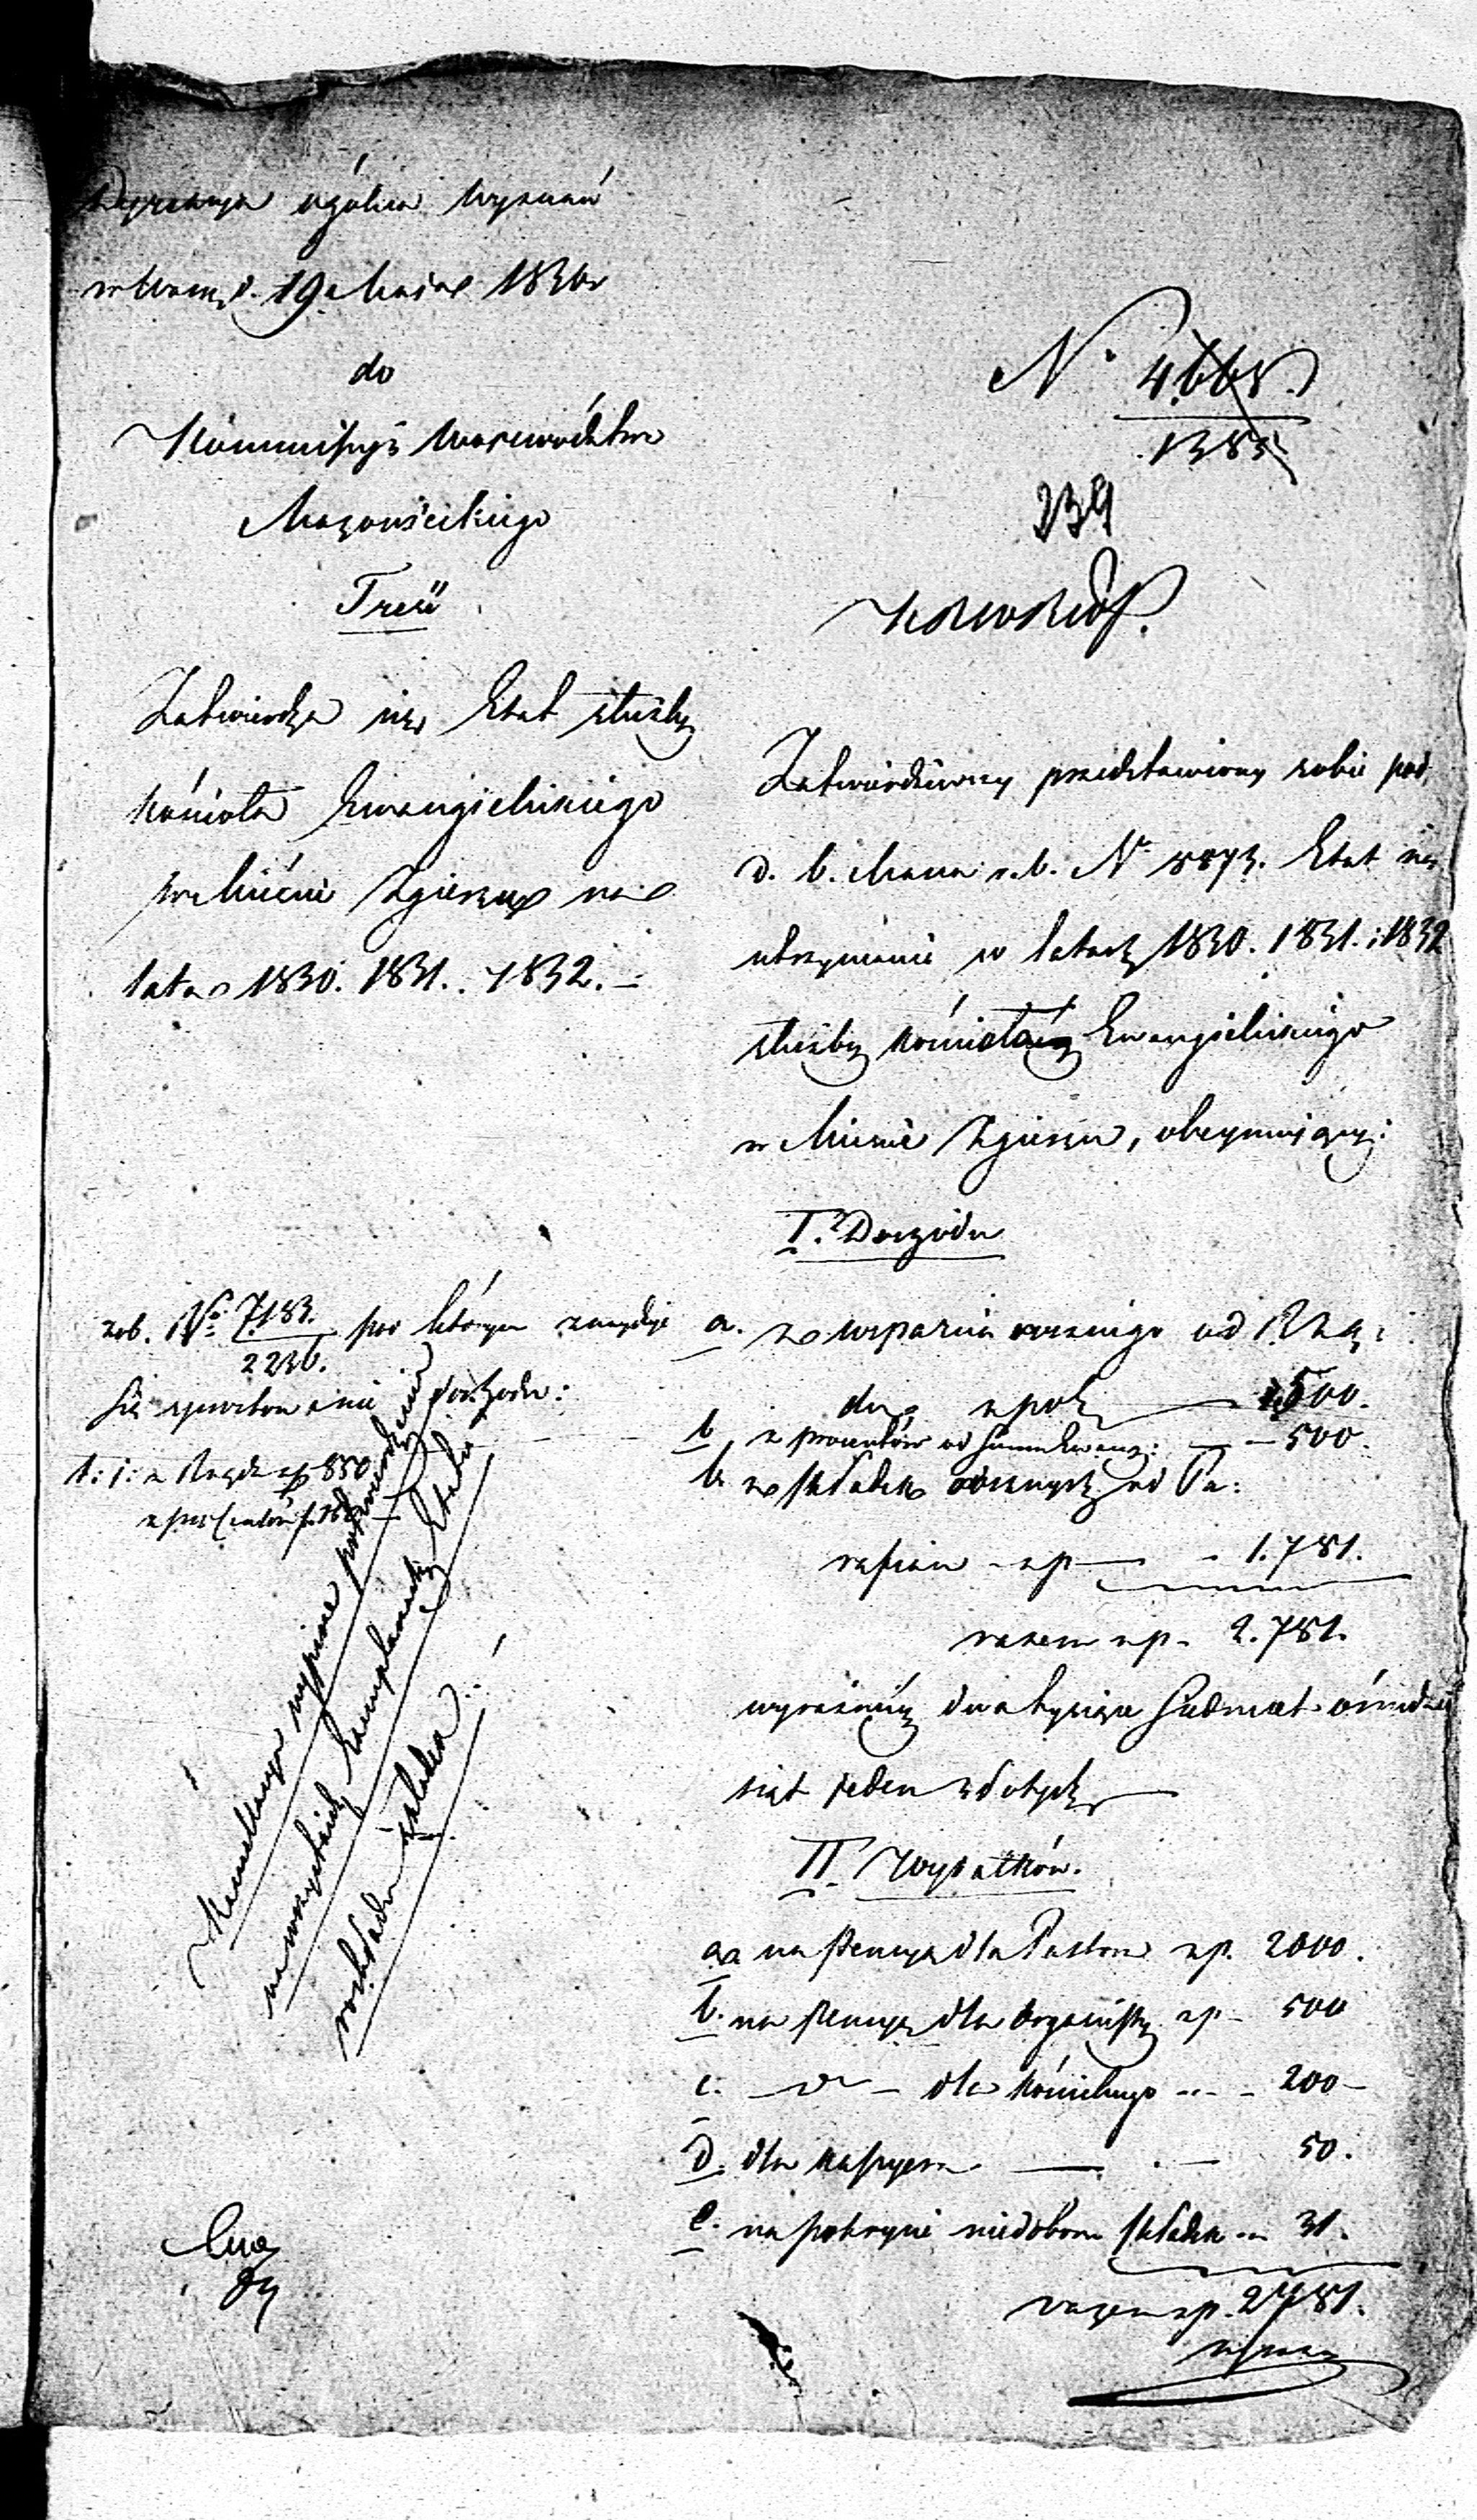 Dyrekcya ogólna Wyznań
w Warsz. d. 19. Maja 1830r
do
Kommissyi Województwa
Mazowieckiego
Treść
Zatwierdza się Etat służby
kościoła Ewangielickiego
w Mieście Zgierzu na
lata 1830. 1831. 1832. –
N° 4668.
1385.
239
Zatwierdziwszy przedstawiony sobie pod
d. 6. Marca r. b. N° 5873. Etat na
utrzymanie w latach 1830. 1831. i 1832
służby kościoła Ewangielickiego
w Mieście Zgierzu, obeymujący:
I. Dochodu
a. ze wsparcia rocznego od Rzą:
du zpol. — 500.
b z procentów od Summ — 500.
ze składek rocznych od Pa:
rafian – zp — 1.781.
razem zp. 2.781.
wyraźniej dwa tysiące siedmset ośmdzie
siąt jeden złotych
II. Wydatków.
a. na Pensyą dla Pastora zp. 2000.
b. na Pensyą dla Organisty zp – 500
c. — d° — dla kościelnego – 200 –
d. dla kassyera — 50.
e. na pokrycie niedoboru składek – 31.
razem zp. 2781.
zob. N° 7183. po którym znayduje
2236.
się sprostowanie dochodu:
t: j: z Rządu zp 850
z procentów
Kancellarya wypisze potwierdzenie
na wszystkich Exemplarzach Etatu
rozkładu składek